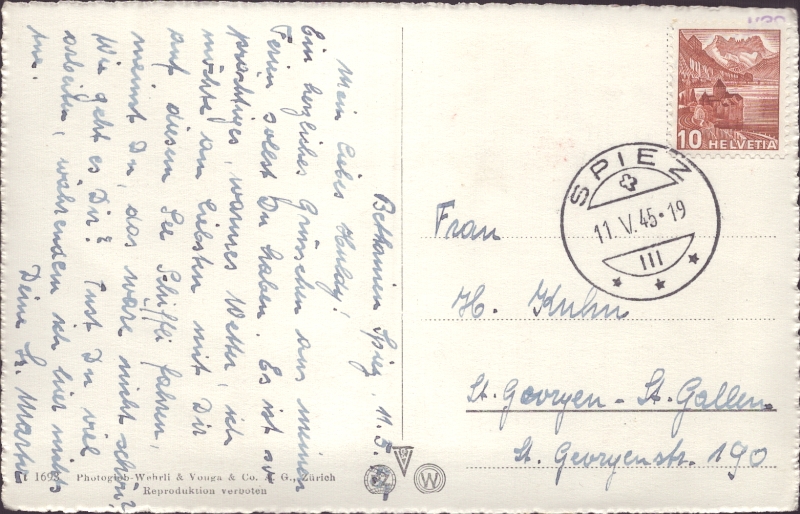 Bethanien Spiez, 11.5.
Mein liebes Huldy!
Ein herzliches Grüsschen aus meinen
Ferien sollst Du haben. Es ist so
prächtiges, warmes Wetter, ich
möchte am liebsten mit Dir
auf diesem See Schiffli fahren,
meinst Du, das wäre nicht schön?
Wie geht es Dir? Tust Du viel
arbeiten, währenddem ich hier nichts
tue.
Deine Sr. Martha
HELVETIA
10
SPIEZ
11.V.45-19
III
Frau
H. Kuhn
St. Georgen - St. Gallen
St. Georgenstr. 190
Photoglob-Wehrli & Vouga & Co. A. G., Zürich
Reproduktion verboten
W